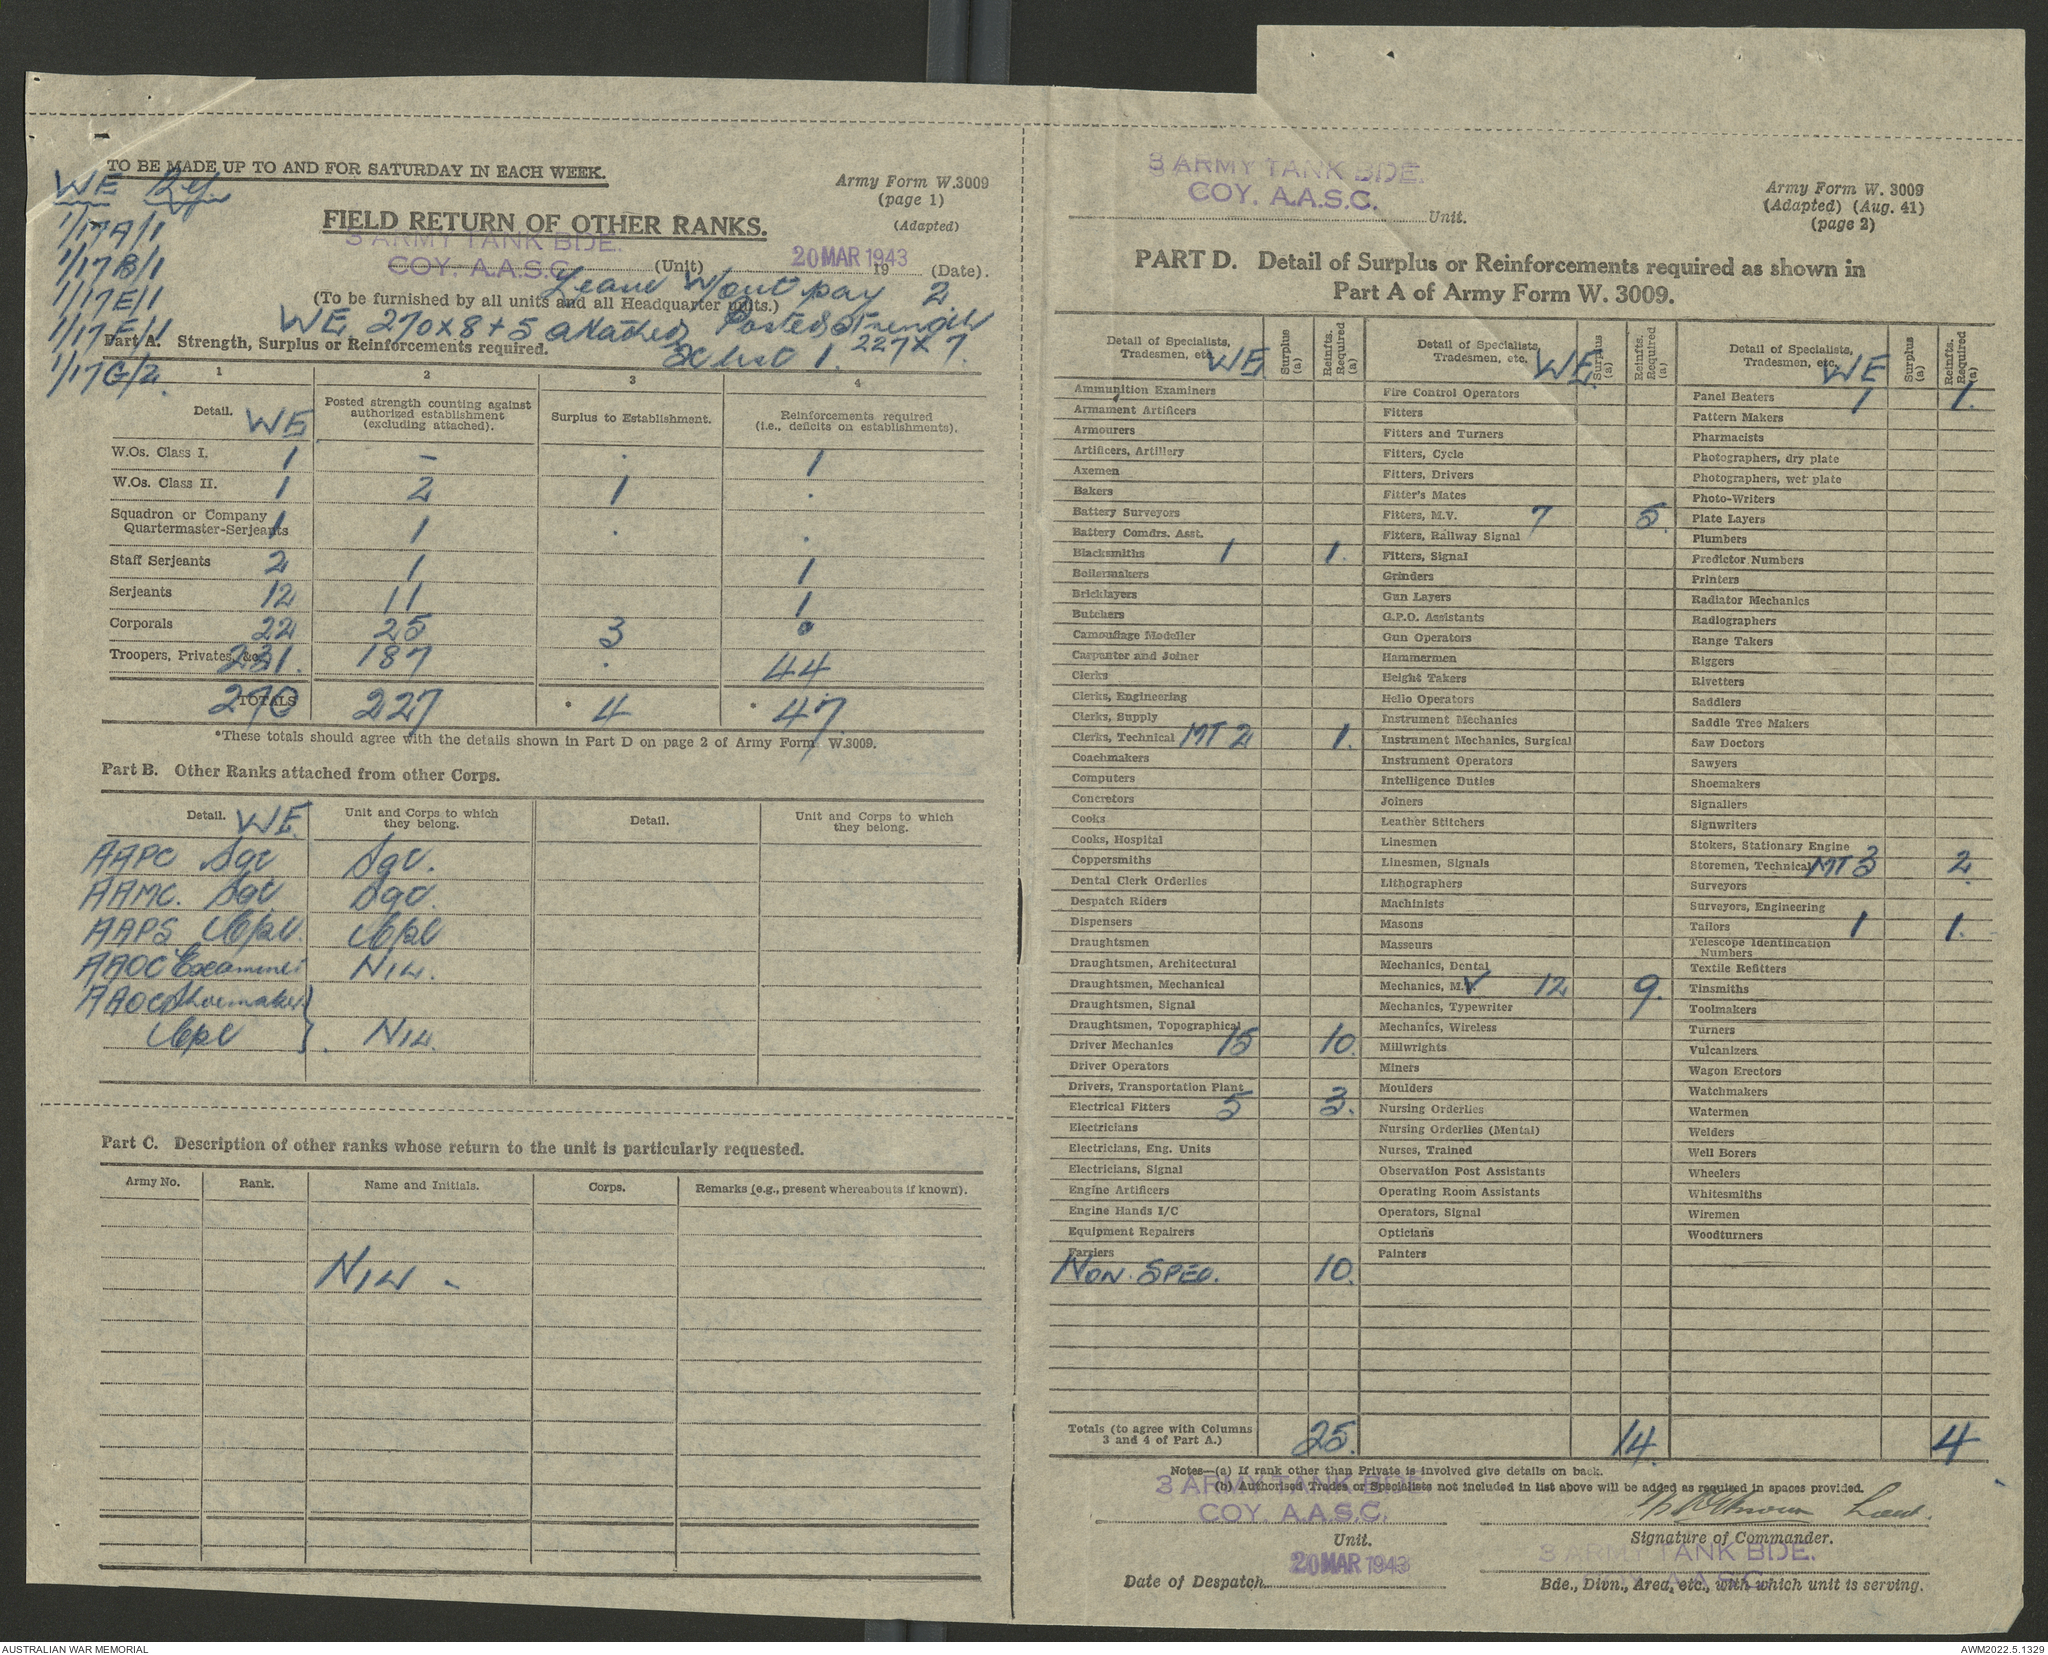 TO BE MADE UP TO AND FOR SATURDAY IN EACH WEEK.
Army Form W.3009
(page 1)
(Adapted)
WE Ref.
1/17A/1
1/17B/1
1/17E/1
1/17F/1
1/17G/2.
FIELD RETURN OF OTHER RANKS.
3 ARMY TANK BDE.
COY. A.A.S.C. (Unit) 20 MAR 1943 19 (Date).
Leave Wout pay 2.
(To be furnished by all units and all Headquarter units.)
WE 270 x 8 + 5 attached Posted Strength
X list 1. 227 x 7.
Part A. Strength, Surplus or Reinforcements required.
1 2 3 4
Detail. WE Posted strength counting against authorized establishment (excluding attached). Surplus to Establishment. Reinforcements required (i.e., deficits on establishments).
W.Os. Class I. 1 - . 1
W.Os. Class II. 1 2 1 .
Squadron or Company Quartermaster-Serjeants 1 1 . .
Staff Serjeants 2 1 1
Serjeants 12 11 1
Corporals 22 25 3 .
Troopers, Privates, &c. 231. 187 . 44
TOTALS 270 227 * 4 * 47.
*These totals should agree with the details shown in Part D on page 2 of Army Form W.3009.
Part B. Other Ranks attached from other Corps.
Detail. WE Unit and Corps to which they belong. Detail. Unit and Corps to which they belong.
AAPC Sgt Sgt.
AAMC. Sgt Sgt.
AAPS Cpl. Cpl
AAOC Examiner NIL.
AAOC Shoemaker }
Cpl } . NIL.
Part C. Description of other ranks whose return to the unit is particularly requested.
Army No. Rank. Name and Initials. Corps. Remarks (e.g., present whereabouts if known).
NIL -
3 ARMY TANK BDE.
COY. A.A.S.C. Unit.
Army Form W. 3009
(Adapted) (Aug. 41)
(page 2)
PART D. Detail of Surplus or Reinforcements required as shown in
Part A of Army Form W. 3009.
Detail of Specialists, Tradesmen, etc. WE Surplus (a) Reinfts. Required (a)
Ammunition Examiners
Armament Artificers
Armourers
Artificers, Artillery
Axemen
Bakers
Battery Surveyors
Battery Comdrs. Asst.
Blacksmiths 1 1.
Boilermakers
Bricklayers
Butchers
Camouflage Modeller
Carpenter and Joiner
Clerks
Clerks, Engineering
Clerks, Supply
Clerks, Technical MT 2 1.
Coachmakers
Computers
Concretors
Cooks
Cooks, Hospital
Coppersmiths
Dental Clerk Orderlies
Despatch Riders
Dispensers
Draughtsmen
Draughtsmen, Architectural
Draughtsmen, Mechanical
Draughtsmen, Signal
Draughtsmen, Topographical
Driver Mechanics 15 10.
Driver Operators
Drivers, Transportation Plant
Electrical Fitters 5 3.
Electricians
Electricians, Eng. Units
Electricians, Signal
Engine Artificers
Engine Hands I/C
Equipment Repairers
Farriers
NON. SPEC. 10.
Detail of Specialists, Tradesmen, etc. WE. Surplus (a) Reinfts. Required (a)
Fire Control Operators
Fitters
Fitters and Turners
Fitters, Cycle
Fitters, Drivers
Fitter's Mates
Fitters, M.V. 7 5.
Fitters, Railway Signal
Fitters, Signal
Grinders
Gun Layers
G.P.O. Assistants
Gun Operators
Hammermen
Height Takers
Helio Operators
Instrument Mechanics
Instrument Mechanics, Surgical
Instrument Operators
Intelligence Duties
Joiners
Leather Stitchers
Linesmen
Linesmen, Signals
Lithographers
Machinists
Masons
Masseurs
Mechanics, Dental
Mechanics, M.V. 12 9.
Mechanics, Typewriter
Mechanics, Wireless
Millwrights
Miners
Moulders
Nursing Orderlies
Nursing Orderlies (Mental)
Nurses, Trained
Observation Post Assistants
Operating Room Assistants
Operators, Signal
Opticians
Painters
Detail of Specialists, Tradesmen, etc. WE Surplus (a) Reinfts. Required (a)
Panel Beaters 1 1.
Pattern Makers
Pharmacists
Photographers, dry plate
Photographers, wet plate
Photo-Writers
Plate Layers
Plumbers
Predictor Numbers
Printers
Radiator Mechanics
Radiographers
Range Takers
Riggers
Rivetters
Saddlers
Saddle Tree Makers
Saw Doctors
Sawyers
Shoemakers
Signallers
Signwriters
Stokers, Stationary Engine
Storemen, Technical MT 3 2.
Surveyors
Surveyors, Engineering
Tailors 1 1.
Telescope Identification Numbers
Textile Refitters
Tinsmiths
Toolmakers
Turners
Vulcanizers
Wagon Erectors
Watchmakers
Watermen
Welders
Well Borers
Wheelers
Whitesmiths
Wiremen
Woodturners
Totals (to agree with Columns 3 and 4 of Part A.) 25. 14. 4
Notes—(a) If rank other than Private is involved give details on back.
(b) Authorised Trades or Specialists not included in list above will be added as required in spaces provided.
3 ARMY TANK BDE.
COY. A.A.S.C.
Unit.
Lieut.
Signature of Commander.
Date of Despatch 20 MAR 1943
3 ARMY TANK BDE.
Bde., Divn., Area, etc., with which unit is serving.
AUSTRALIAN WAR MEMORIAL
AWM2022.5.1329